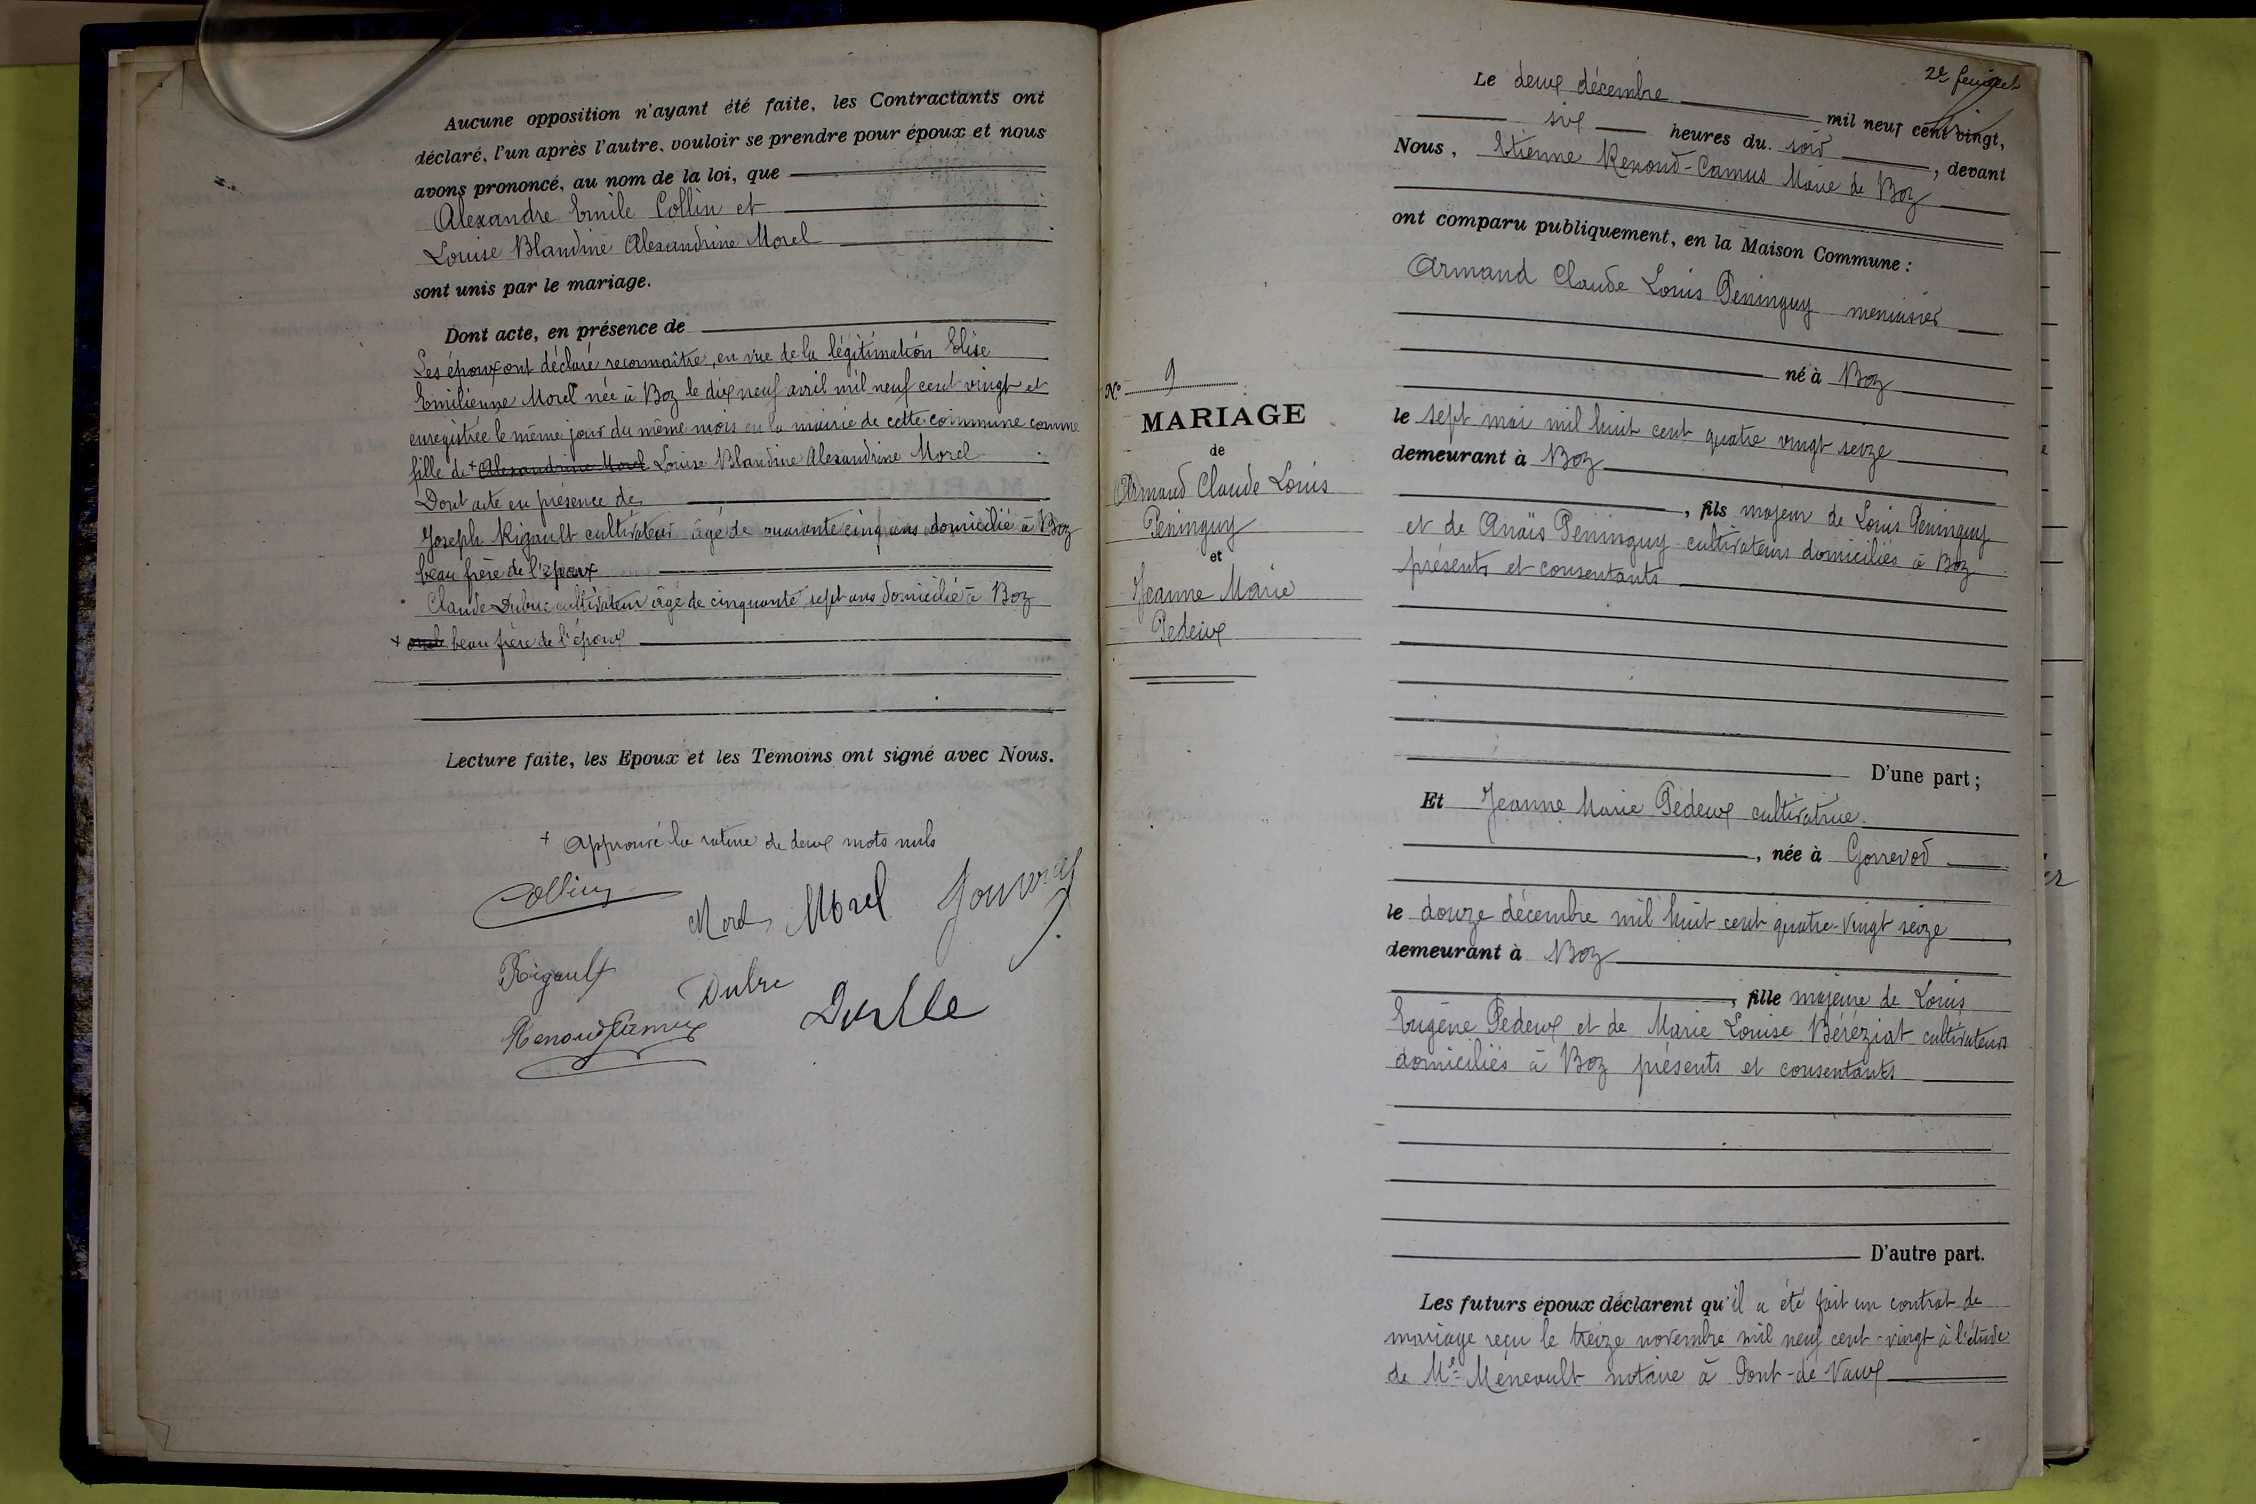 Aucune opposition n'ayant été faite, les Contractants ont
déclaré, l'un après l'autre, vouloir se prendre pour époux et nous
avons prononcé, au nom de la loi, que
Alexandre Emile Collin et
Louise Blandine Alexandrine Morel
sont unis par le mariage.
Dont acte, en présence de
Les époux ont déclaré reconnaître, en vue de la légitimation Elise
Emilienne Morel née à Boz le dix neuf avril mil neuf cent vingt et
enregistrée le même jour du même mois en la mairie de cette commune comme
fille de + Alexandrine Morel Louise Blandine Alexandrine Morel
Dont acte en présence de
Joseph Rigault cultivateur âgé de quarante cinq ans domicilié à Boz
beau frère de l'époux
Claude Dubuc cultivateur âgé de cinquante sept ans domicilié à Boz
+ oncle beau frère de l'époux
Lecture faite, les Epoux et les Témoins ont signé avec Nous.
+ Approuvé la rature de deux mots nuls
Collin
Morel Morel
Rigault
Renoud Camus
N° 9
MARIAGE
de
Armand Claude Louis
Peninguy
et
Jeanne Marie
Pedeux
2e feuillet
Le deux décembre mil neuf cent vingt,
six heures du soir, devant
Nous, Etienne Renoud-Camus Maire de Boz
ont comparu publiquement, en la Maison Commune :
Armand Claude Louis Peninguy menuisier
né à Boz
le sept mai mil huit cent quatre vingt seize
demeurant à Boz
, fils majeur de Louis Peninguy
et de Anaïs Peninguy cultivateurs domiciliés à Boz
présents et consentants
D'une part ;
Et Jeanne Marie Pedeux cultivatrice
, née à Gorrevod
le douze décembre mil huit cent quatre-vingt seize
demeurant à Boz
, fille majeure de Louis
Eugène Pedeux et de Marie Louise Béréziat cultivateurs
domiciliés à Boz présents et consentants
D'autre part.
Les futurs époux déclarent qu'il a été fait un contrat de
mariage reçu le treize novembre mil neuf cent-vingt à l'étude
de Me Ménevult notaire à Pont-de-Vaux